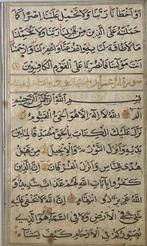 أَوْ أَخْطَأْنَا رَبَّنَا وَلَا تَحْمِلْ عَلَيْنَا إِصْرًا كَمَا
حَمَلْتَهُ عَلَى الَّذِينَ مِنْ قَبْلِنَا رَبَّنَا وَلَا تُحَمِّلْنَا
مَا لَا طَاقَةَ لَنَا بِهِ وَاعْفُ عَنَّا وَاغْفِرْ لَنَا وَارْحَمْنَا
أَنْتَ مَوْلَانَا فَانْصُرْنَا عَلَى الْقَوْمِ الْكَافِرِينَ
سورة آل عمران
بِسْمِ اللَّهِ الرَّحْمَنِ الرَّحِيمِ
الم اللَّهُ لَا إِلَهَ إِلَّا هُوَ الْحَيُّ الْقَيُّومُ
نَزَّلَ عَلَيْكَ الْكِتَابَ بِالْحَقِّ مُصَدِّقًا لِمَا بَيْنَ
يَدَيْهِ وَأَنْزَلَ التَّوْرَيةَ وَالْإِنْجِيلَ مِنْ قَبْلُ
هُدًى لِلنَّاسِ وَأَنْزَلَ الْفُرْقَانَ إِنَّ الَّذِينَ
كَفَرُوا بِآيَاتِ اللَّهِ لَهُمْ عَذَابٌ شَدِيدٌ وَاللَّهُ
عَزِيزٌ ذُو انْتِقَامٍ إِنَّ اللَّهَ لَا يَخْفَى عَلَيْهِ
شَيْءٌ فِي الْأَرْضِ وَلَا فِي السَّمَاءِ هُوَ الَّذِي
يُصَوِّرُكُمْ فِي الْأَرْحَامِ كَيْفَ يَشَاءُ